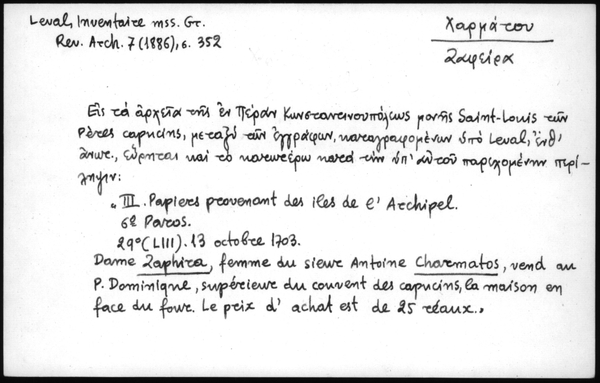 Leval, Inventaire mss. Gr.
Rev. Arch. 7 (1886), σ. 352
Χαρμάτου
Ζαφείρα
Εἰς τὰ ἀρχεῖα τῆς ἐν Πέραν Κωνσταντινουπόλεως μονῆς Saint-Louis τῶν
Pères capucins, μεταξὺ τῶν ἐγγράφων, καταγραφομένων ὑπὸ Leval, ἔνθ'
ἀνωτ., εὕρηται καὶ τὸ κατωτέρω κατὰ τὴν ὑπ' αὐτοῦ παρεχομένην περί-
ληψιν:
"III. Papiers provenant des iles de l'Archipel.
6º Paros.
29º (LIII). 13 octobre 1703.
Dame Zaphira, femme du sieur Antoine Charmatos, vend au
P. Dominique, supérieur du couvent des capucins, la maison en
face du four. Le prix d'achat est de 25 réaux.„